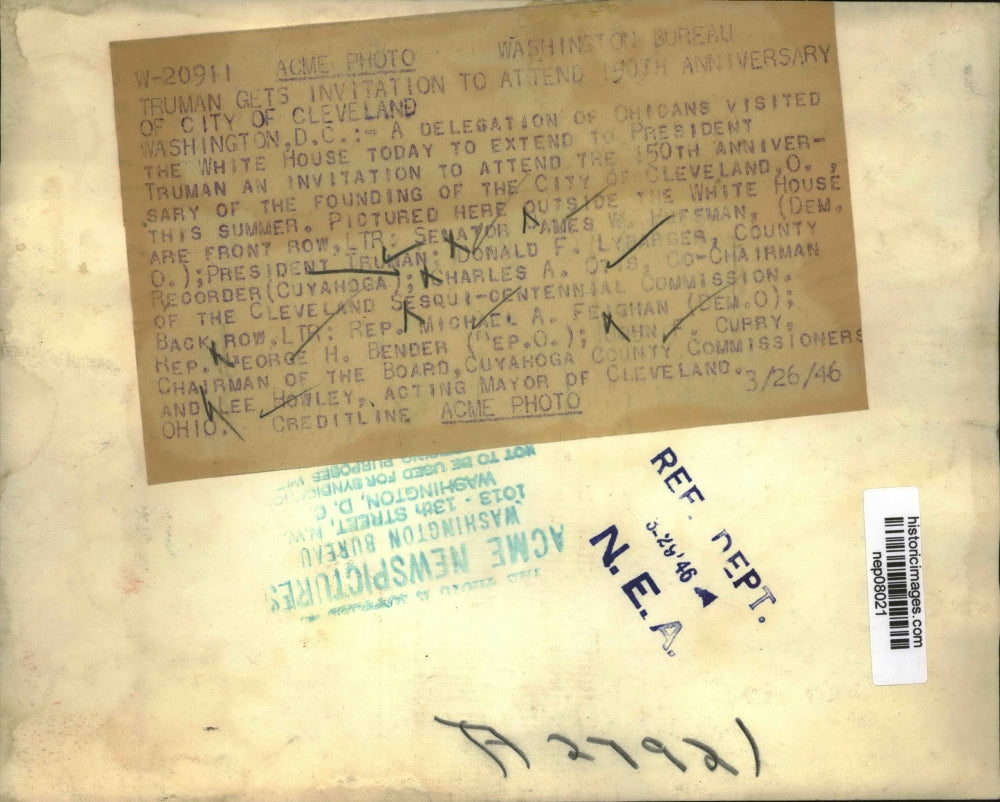 W-20911 ACME PHOTO WASHINGTON BUREAU
TRUMAN GETS INVITATION TO ATTEND 150TH ANNIVERSARY
OF CITY OF CLEVELAND
WASHINGTON,D.C.:- A DELEGATION OF OHIOANS VISITED
THE WHITE HOUSE TODAY TO EXTEND TO PRESIDENT
TRUMAN AN INVITATION TO ATTEND THE 150TH ANNIVER-
SARY OF THE FOUNDING OF THE CITY OF CLEVELAND,O.,
THIS SUMMER. PICTURED HERE OUTSIDE THE WHITE HOUSE
ARE FRONT ROW,LTR: SENATOR JAMES W. HUFFMAN, (DEM.
O.);PRESIDENT TRUMAN; DONALD F. LYBARGER, COUNTY
RECORDER(CUYAHOGA); CHARLES A. OTIS, CO-CHAIRMAN
OF THE CLEVELAND SESQUI-CENTENNIAL COMMISSION.
BACK ROW,LTR: REP. MICHAEL A. FEIGHAN (DEM.O);
REP. GEORGE H. BENDER (REP.O.); JOHN F. CURRY,
CHAIRMAN OF THE BOARD,CUYAHOGA COUNTY COMMISSIONERS
AND LEE HOWLEY, ACTING MAYOR OF CLEVELAND.
OHIO. CREDITLINE ACME PHOTO 3/26/46
ACME NEWSPICTURES
WASHINGTON BUREAU
1013 - 13th STREET, N.W.
WASHINGTON, D. C.
NOT TO BE USED FOR SYNDICATIO
REF. DEPT.
N.E.A.
historicimages.com
nep08021
A 27921